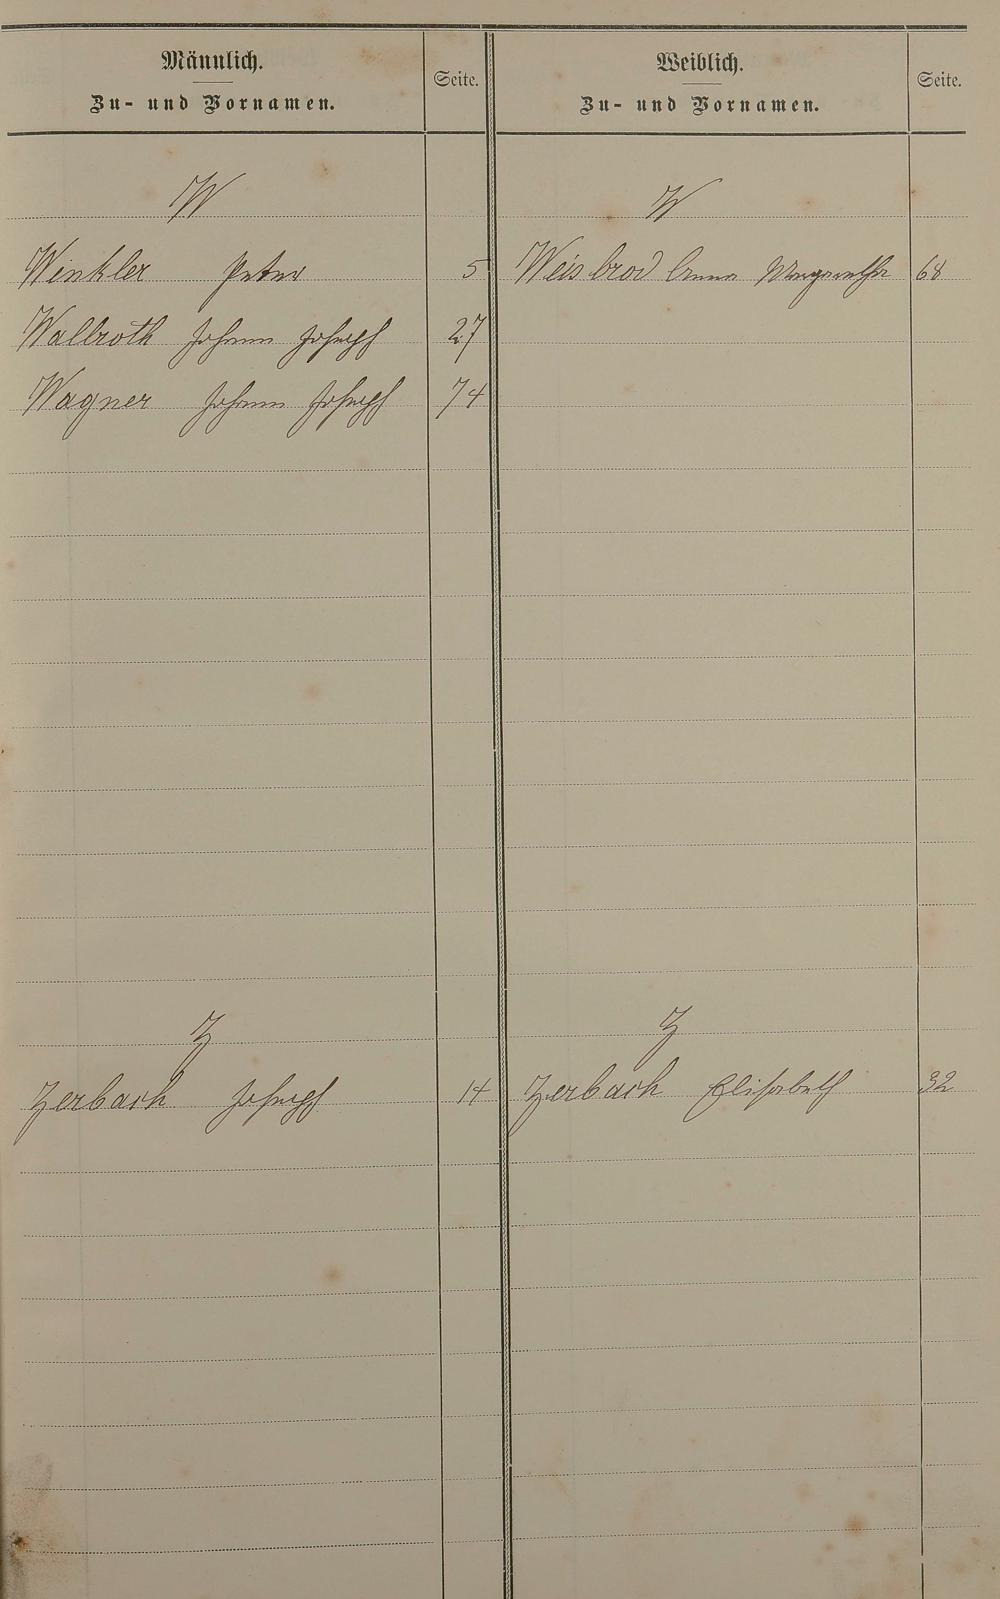 Männlich.
Zu- und Vornamen.
Seite.
Weiblich.
Zu- und Vornamen.
Seite.
W
W
Winkler Peter 5
Weisbrod Anna Margaretha 68
Wallroth Johann Joseph 27
Wagner Johann Joseph 74
Z
Z
Zerbach Joseph 14
Zerbach Elisabeth 32